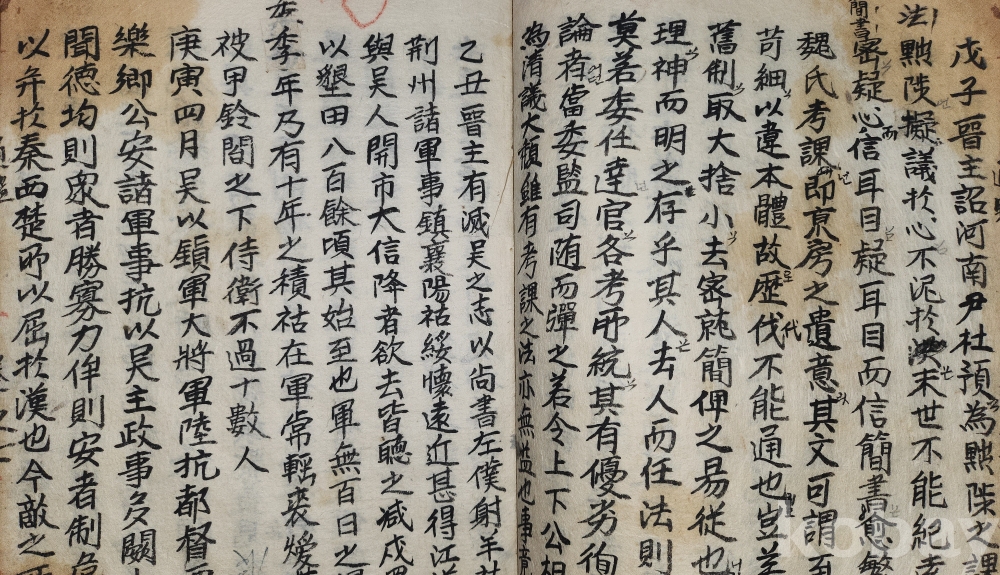 戊子晋主詔河南尹杜預為黜陟之課
法黜陟擬議於心不泥於末世不能紀
簡書密疑心而信耳目疑耳目而信簡書愈繁
魏氏考課即京房之遺意其文可謂至
苛細以違本體故歴代不能通也豈若
舊制取大捨小去密就簡俾之易從也
理神而明之存乎其人去人而任法則
莫若委任達官各考所統其有優劣徇
論者當委監司随而彈之若令上下公相
為清議大頹雖有考課之法亦無益也事竟
乙丑晋主有滅吴之志以尚書左僕射羊祜
荆州諸軍事鎮襄陽祜綏懷遠近甚得江
與吴人開市大信降者欲去皆聽之减戍
以墾田八百餘頃其始至也軍無百日之
季年乃有十年之積祜在軍常輕裘煖
被甲鈴閤之下侍衛不過十數人
庚寅四月吴以鎮軍大將軍陸抗都督
樂鄉公安諸軍事抗以吴主政事多闕
聞德均則衆者勝寡力侔則安者制危
以并於秦西楚所以屈於漢也今敵之
kobay